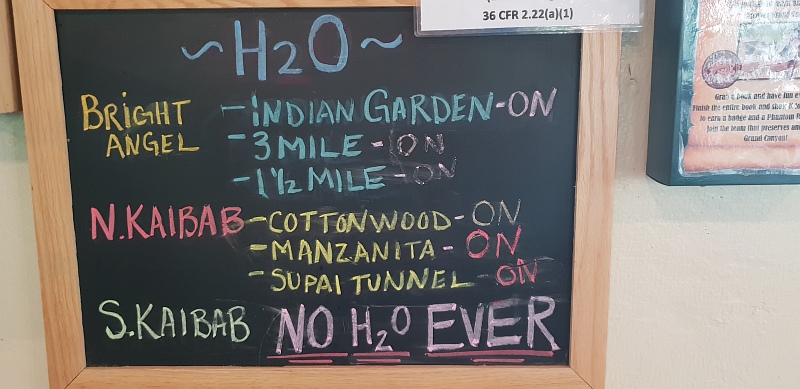 36 CFR 2.22(a)(1)
~H2O~
BRIGHT ANGEL
-INDIAN GARDEN-ON
-3 MILE-ON
-1 1/2 MILE-ON
N.KAIBAB-COTTONWOOD-ON
-MANZANITA-ON
-SUPAI TUNNEL-ON
S.KAIBAB NO H2O EVER
Grab a book and have fun
Finish the entire book and
to earn a badge and a Phantom
Join the team that preserves
Grand Canyon!